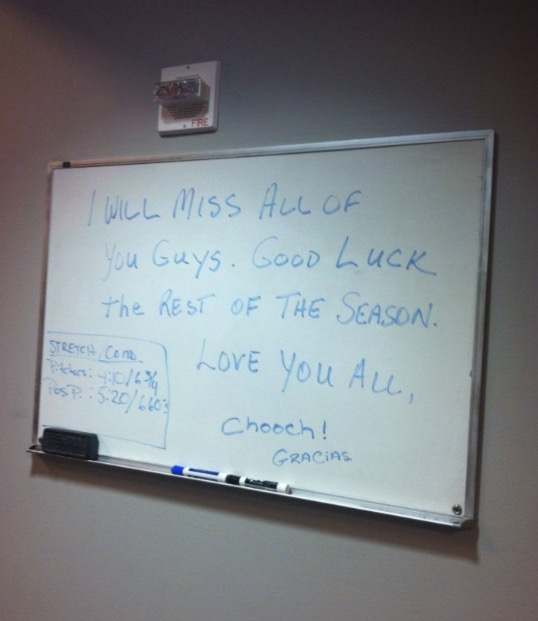 FIRE
I WILL MISS ALL OF
YOU GUYS. GOOD LUCK
the REST OF THE SEASON.
LOVE YOU ALL,
Chooch!
GRACIAS
STRETCH / COND.
Pitchers: 4:10/6 3/4
Pos P.: 5:20/6 60's